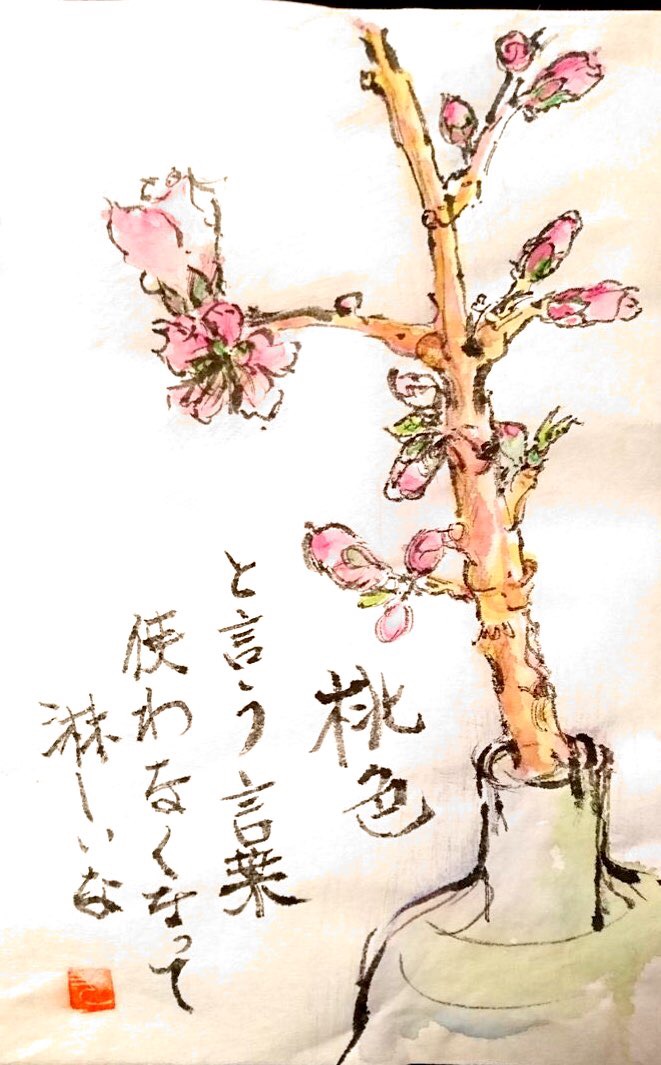 桃色
と言う言葉
使わなくなって
淋しいな